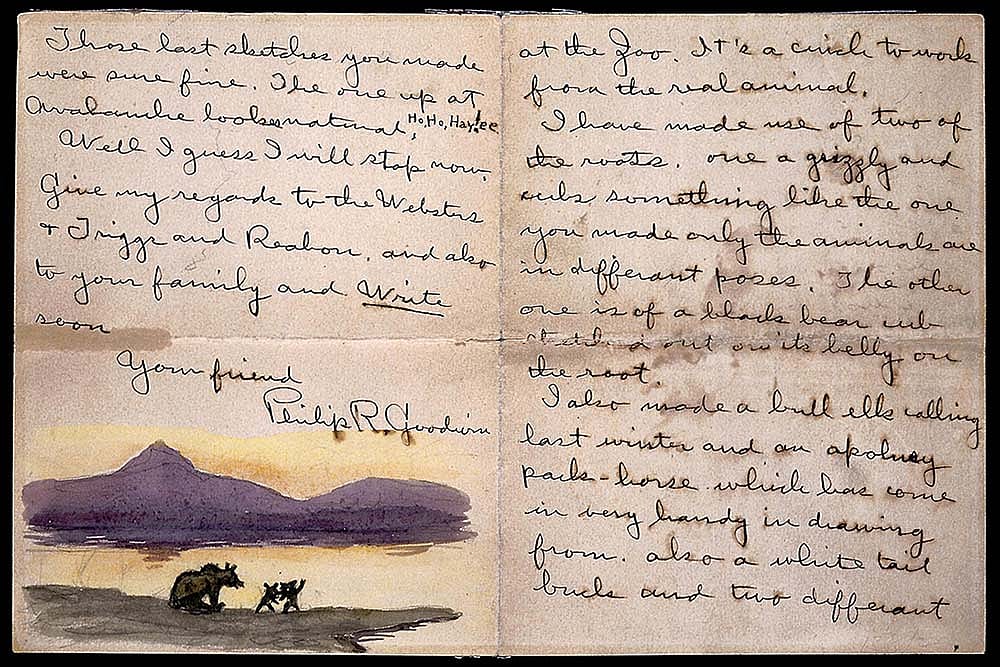 Those last sketches you made
were sure fine. The one up at
Avalanche looks natural, Ho, Ho, Hay! Lee.
Well I guess I will stop now.
Give my regards to the Websters
& Triggs and Reabon, and also
to your family and Write
soon
Your friend
Philip R. Goodwin
at the Zoo. It's a cinch to work
from the real animal.
I have made use of two of
the roots. one a grizzly and
cubs something like the one
you made only the animals are
in differant poses. The other
one is of a black bear cub
out on its belly on
the root.
I also made a bull elk calling
last winter and an
pack-horse which has come
in very handy in drawing
from. also a white tail
buck and two differant